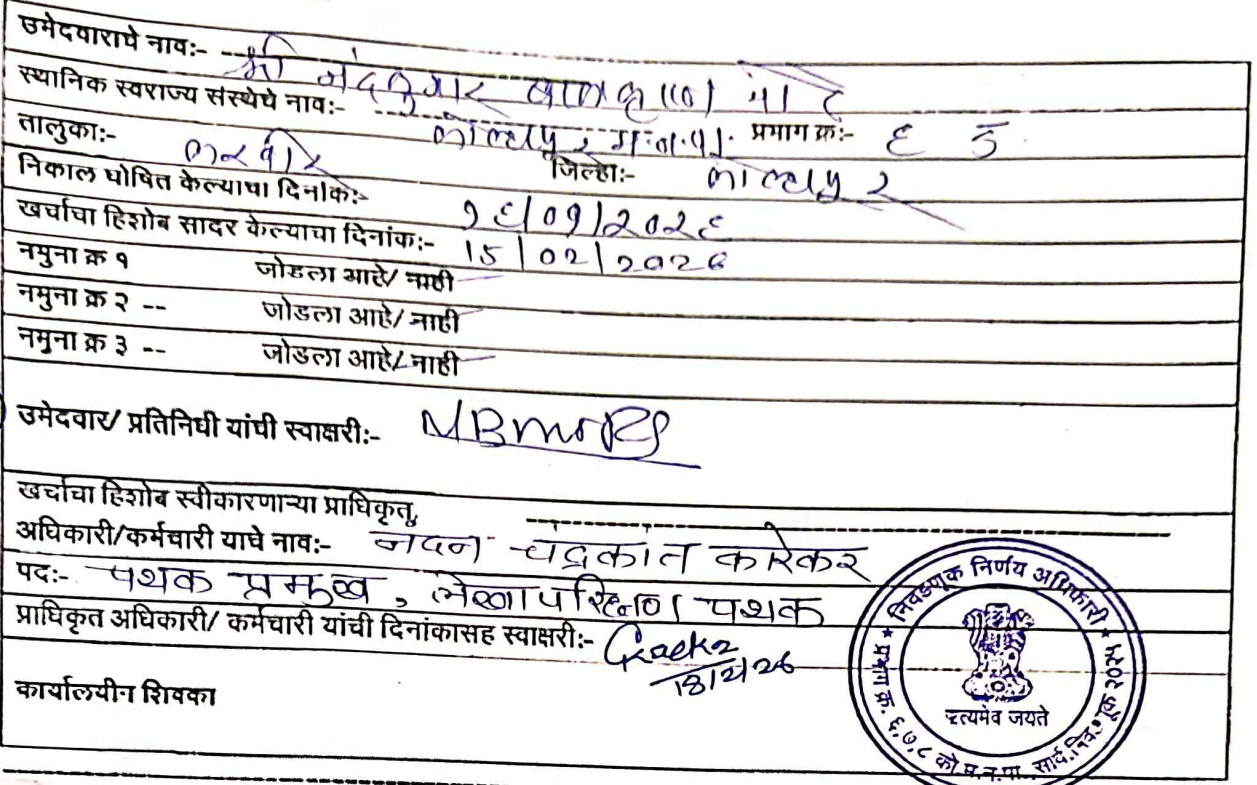 उमेदवाराचे नाव:- श्री नंदकुमार बाळकृष्ण मोरे
स्थानिक स्वराज्य संस्थेचे नाव:- कोल्हापूर म.न.पा. प्रभाग क्र:- ६ ड
तालुका:- करवीर जिल्हा:- कोल्हापूर
निकाल घोषित केल्याचा दिनांक:- १६/०१/२०२६
खर्चाचा हिशोब सादर केल्याचा दिनांक:- 15/02/2026
नमुना क्र १ जोडला आहे/ नाही
नमुना क्र २ -- जोडला आहे/ नाही
नमुना क्र ३ -- जोडला आहे/ नाही
उमेदवार/ प्रतिनिधी यांची स्वाक्षरी:- NBmore
खर्चाचा हिशोब स्वीकारणाऱ्या प्राधिकृत,
अधिकारी/कर्मचारी याचे नाव:- चंद्रकांत कारेकर
पद:- पथक प्रमुख, लेखापरिक्षण पथक
प्राधिकृत अधिकारी/ कर्मचारी यांची दिनांकासह स्वाक्षरी:-
18/2/26
कार्यालयीन शिक्का
निवडणूक निर्णय अधिकारी
सत्यमेव जयते
प्रभाग क्र. ६,७,८ को.म.न.पा. सार्व.निवडणूक २०२५